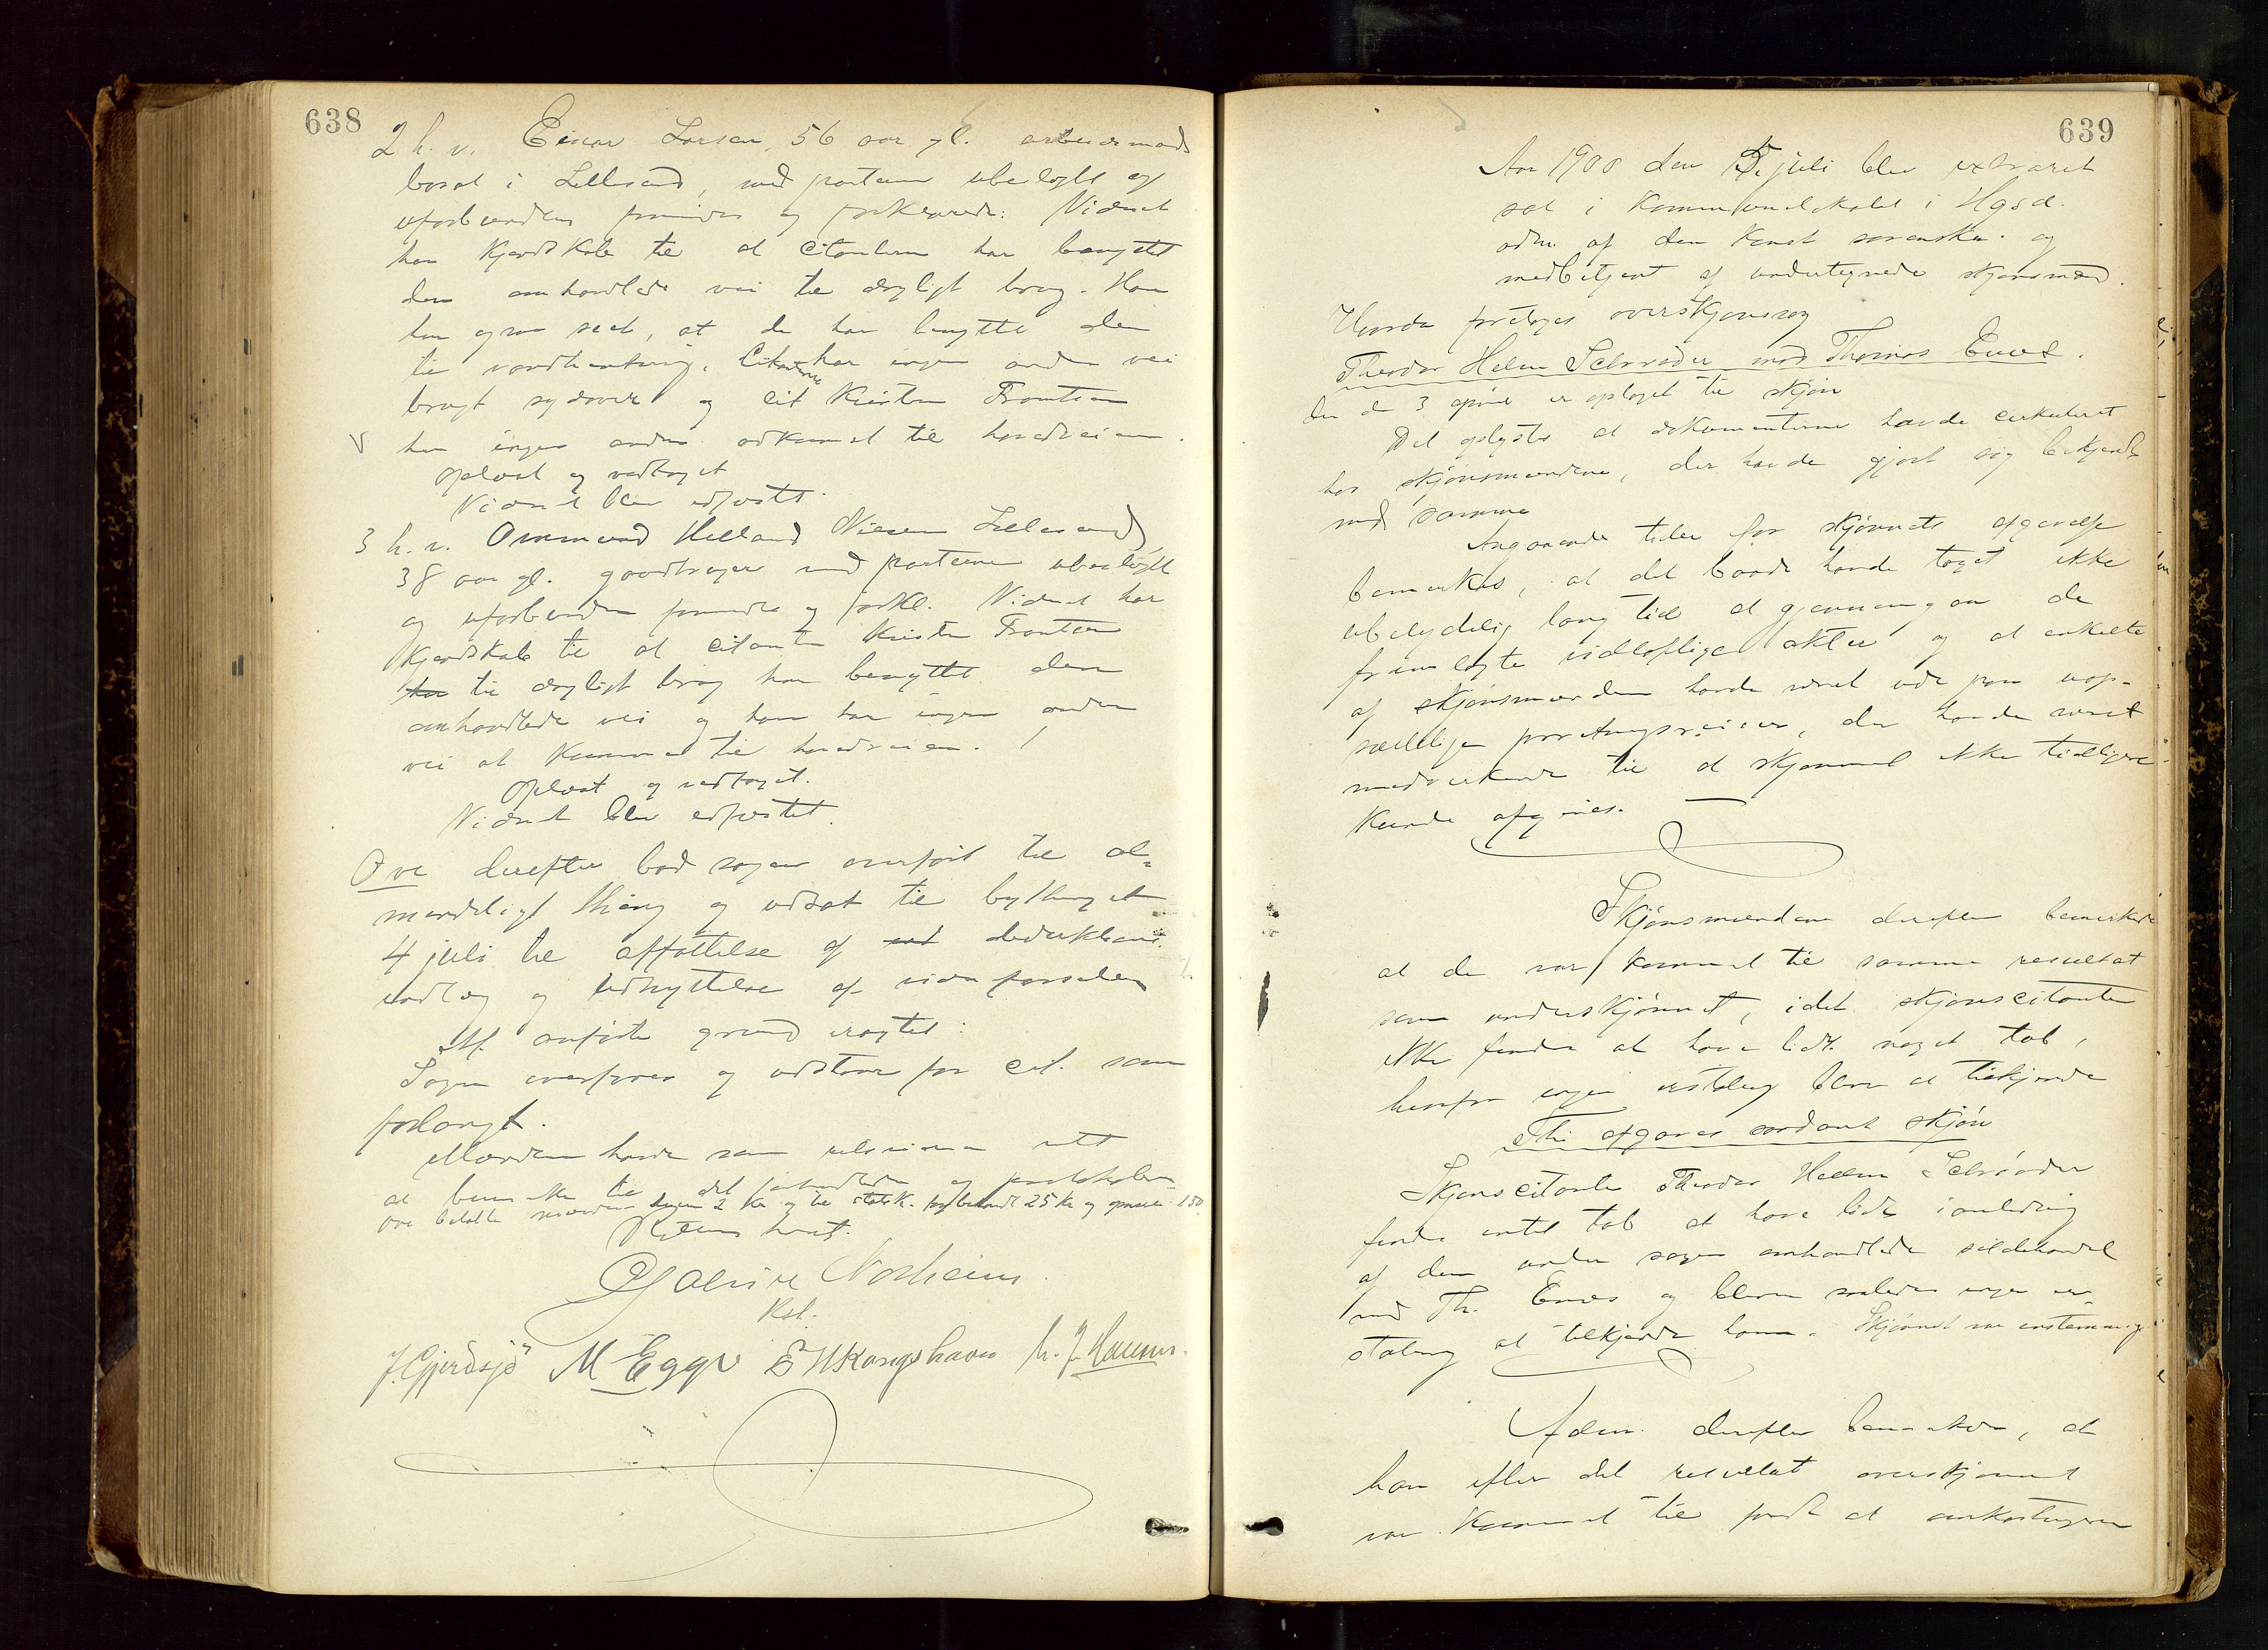 638
2 h. v. Einar Larsen, 56 aar gl. arbeidsmand
bosat i Lillesand, med parterne ubeslegtet og
uforbunden fremstod og forklarede: Vidnet
har kjendskab til at citanterne har benyttet
den omhandlede vei til dagligt brug. Han
har ogsaa seet, at de har benyttet den
til vandhentning. Citanterne har ingen anden vei
bragt og cit Kirsten Frantsen
har ingen anden adkomst til hovedveien.
Oplæst og vedtaget
Vidnet blev edfæstet.
3 h. v. Ommund Helland Nilsen Lillesand,
38 aar gl. gaardbruger med parterne ubeslegtet
og uforbunden fremstod og forkl. Vidnet har
kjendskab til at citanten Kirsten Frantsen
har til dagligt brug har benyttet den
omhandlede vei og hun har ingen anden
vei at komme til hovedveien.
Oplæst og vedtaget.
Vidnet blev edfæstet.
Ove derefter bad sagen overført til al=
mindeligt thing og udsat til bythinget
4 juli til affattelse af deduktions
indlæg og udnyttelse af
Af anførte grund eragtet:
Sagen overføres og udstaar for cit. som
forlangt.
Mændene havde som retsvidner intet
at bemærke til det forhandlede og protokollen
Ove betalte mændene hver 2 kr og til statsk. 25 kr og
Retten hævet.
Norheim
Kst.
J. Gjerdsjø M Egge E H Kongshavn h. J. Haumn.
639
Aar 1900 den 5 juli blev extraret
sat i kommunelokalet i Hgsd.
adm. af den konst sorenskr. og
medbetjent af undertegnede skjønsmænd.
Hvorda foretoges overskjønssag
Theodor Helm Schrøder mod Thomas Enæs.
der d 3 april er optaget til skjøn
Det oplystes at dokumenterne havde cirkuleret
hos skjønsmændene, der havde gjort sig bekjendt
med samme
Angaaende tiden for skjønnets afgivelse
bemærkes, at det baade havde taget ikke
ubetydelig lang tid at gjennemgaa de
fremlagte vidløftige akter og at enkelte
af skjønsmændene havde været ude paa uop-
sættelige forretningsreiser, der havde været
medvirkende til at skjønnet ikke tidligere
kunde afgives.
Skjønsmændene derefter bemerkede
at de var kommet til samme resultat
som underskjønnet, idet skjønscitanten
ikke findes at have lidt noget tab,
hvorfor ingen erstatning blev at tilkjende
Thi afgaves saadant skjøn
Skjønscitanten Theodor Helm Schrøder
findes intet tab at have lidt i anledning
af den under sagen omhandlede sildehandel
med Th. Enæs og bliver saaledes ingen er-
statning at tilkjende ham. Skjønnet var enstemmigt
Adm. derefter bemerkede, at
han efter det resultat overskjønnet
var kommet til fandt at omkostningerne